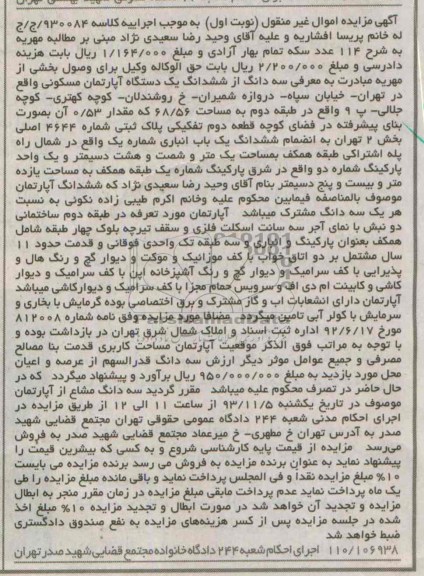 آگهی مزایده اموال غیر منقول (نوبت اول) به موجب اجراییه کلاسه ۹۳۰۰۸۴/ج/ج
له خانم پریسا افشاریه و علیه آقای وحید رضا سعیدی نژاد مبنی بر مطالبه مهریه
به شرح ۱۱۴ عدد سکه تمام بهار آزادی و مبلغ ۱/۱۶۴/۰۰۰ ریال بابت هزینه
دادرسی و مبلغ ۲/۲۰۰/۰۰۰ ریال بابت حق الوکاله وکیل برای وصول بخشی از
مهریه مبادرت به معرفی سه دانگ از ششدانگ یک دستگاه آپارتمان مسکونی واقع
در تهران- خیابان سپاه- دروازه شمیران- خ روشندلان- کوچه کهتری- کوچه
جلالی- پ ۹ واقع در طبقه دوم به مساحت ۶۸/۵۶ که مقدار ۰/۵۳ آن بصورت
بنای پیشرفته در فضای کوچه قطعه دوم تفکیکی پلاک ثبتی شماره ۴۶۴۴ اصلی
بخش ۲ تهران به انضمام ششدانگ یک باب انباری شماره یک واقع در شمال راه
پله اشتراکی طبقه همکف بمساحت یک متر و شصت و هشت دسیمتر و یک واحد
پارکینگ شماره دو واقع در شرق پارکینگ شماره یک طبقه همکف به مساحت یازده
متر و بیست و پنج دسیمتر بنام آقای وحید رضا سعیدی نژاد که ششدانگ آپارتمان
موصوف بالمناصفه فیمابین محکوم علیه وخانم اکرم طیبی زاده نکونی به نسبت
هر یک سه دانگ مشترک میباشد آپارتمان مورد تعرفه در طبقه دوم ساختمانی
دو نبش با نمای آجر سه سانت اسکلت فلزی و سقف تیرچه بلوک چهار طبقه شامل
همکف بعنوان پارکینگ و انباری و سه طبقه تک واحدی فوقانی و قدمت حدود ۱۱
سال مشتمل بر دو اتاق خواب با کف موزائیک و موکت و دیوار گچ و رنگ هال و
پذیرایی با کف سرامیک و دیوار گچ و رنگ آشپزخانه اپن با کف سرامیک و دیوار
کاشی و کابینت ام دی اف و سرویس حمام مجزا با کف سرامیک و دیوارکاشی میباشد
آپارتمان دارای انشعابات آب و گاز مشترک و برق اختصاصی بوده گرمایش با بخاری و
سرمایش با کولر آبی تامین میگردد مضافا مورد مزایده وفق نامه شماره ۸۱۲۰۰۸
مورخ ۹۲/۶/۱۷ اداره ثبت اسناد و املاک شمال شرق تهران در بازداشت بوده و
با توجه به مراتب فوق الذکر موقعیت آپارتمان مساحت کاربری قدمت بنا مصالح
مصرفی و جمیع عوامل موثر دیگر ارزش سه دانگ قدرالسهم از عرصه و اعیان
محل مورد بازدید به مبلغ ۹۵۰/۰۰۰/۰۰۰ ریال برآورد و پیشنهاد میگردد که در
حال حاضر در تصرف محکوم علیه میباشد مقرر گردید سه دانگ مشاع از آپارتمان
موصوف در تاریخ یکشنبه ۹۳/۱۱/۵ از ساعت ۱۱ الی ۱۲ از طریق مزایده در
اجرای احکام مدنی شعبه ۲۴۴ دادگاه عمومی حقوقی تهران مجتمع قضایی شهید
صدر به آدرس تهران خ مطهری- خ میرعماد مجتمع قضایی شهید صدر به فروش
می‌رسد مزایده از قیمت پایه کارشناسی شروع و به کسی که بیشترین قیمت را
پیشنهاد نماید به عنوان برنده مزایده به فروش می رسد برنده مزایده می بایست
۱۰% مبلغ مزایده نقدا و فی المجلس پرداخت نماید و باقی مانده مبلغ مزایده را طی
یک ماه پرداخت نماید عدم پرداخت مابقی مبلغ مزایده در زمان مقرر منجر به ابطال
مزایده و تجدید آن خواهد شد در صورت ابطال و تجدید مزایده ۱۰% مبلغ اخذ
شده در جلسه مزایده پس از کسر هزینه‌های مزایده به نفع صندوق دادگستری
ضبط خواهد شد
۱۱۰/۱۰۶۹۳۸ اجرای احکام شعبه ۲۴۴ دادگاه خانواده مجتمع قضایی شهید صدر تهران